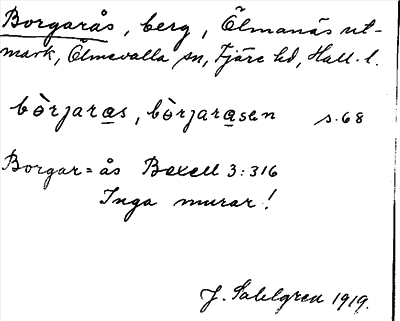 Borgarås, berg, Ölmanäs ut-
mark, Ölmevalla sn, Fjäre hd, Hall. l.
bòrjaras, bòrjarasen s. 68
Borgar=ås Bexell 3:316
Inga murar!
J. Sahlgren 1919.